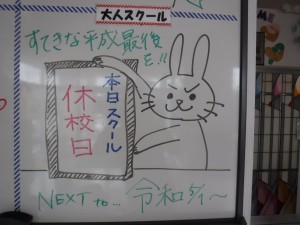 大人スクール
すてきな平成最後
を!!
本日スクール
休校日
NEXT to... 令和5/1～